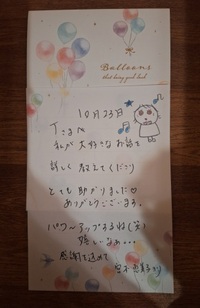 Balloons
that bring good luck
10月23日
Tさん
私が大好きなお話を
詳しく教えてくださり
とても助かりました♡
ありがとうございます。
パワーアップするね(笑)
嬉しいなぁ…
感謝を込めて